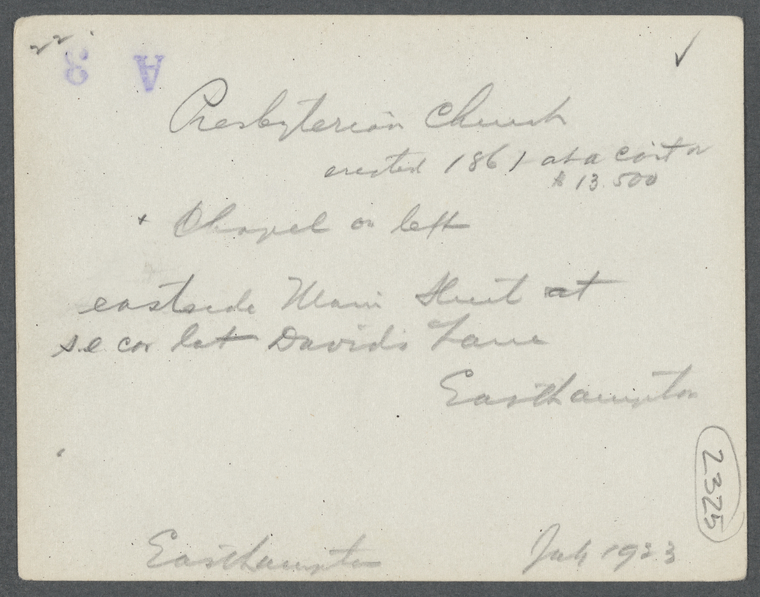 22
A 3
✓
Presbyterian Church
erected 1861 at a cost of
$13.500
+ Chapel on left
eastside Main Street at
s.e cor Davids Lane
Easthampton
2325
Easthampton July 1923